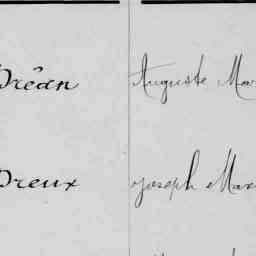 Dréan Auguste Mar
Dreux Joseph Mar